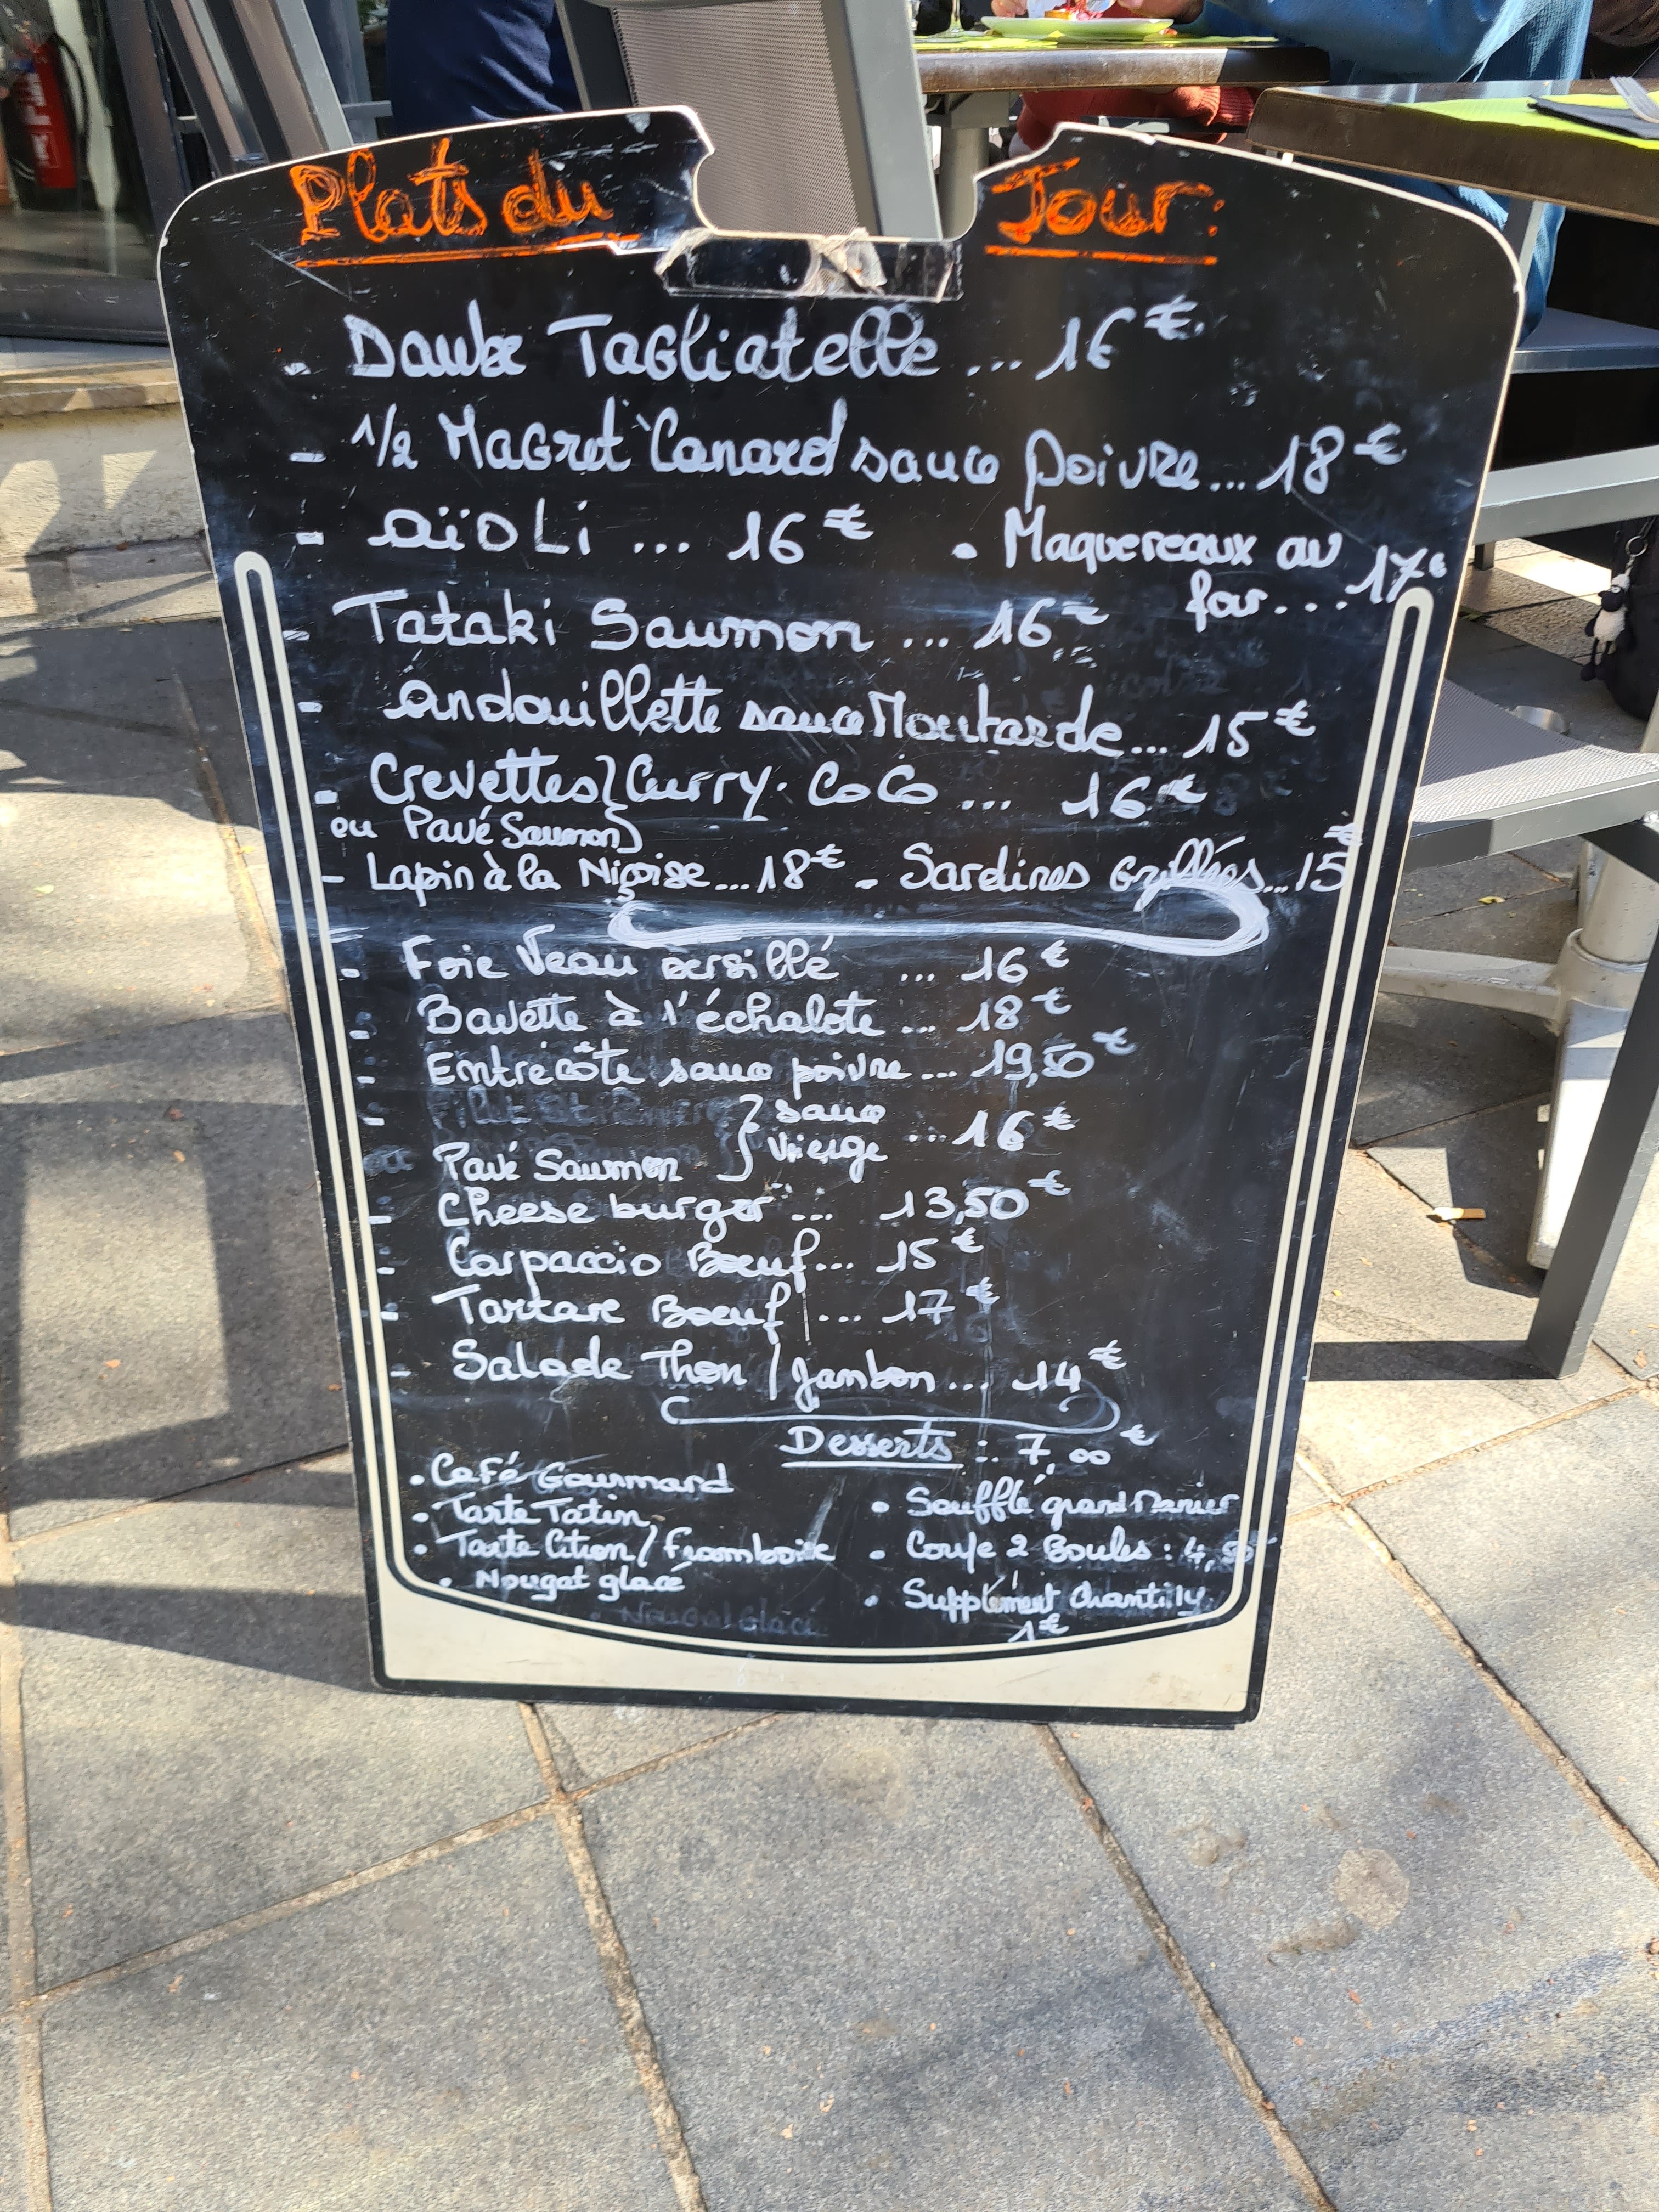 Plats du Jour:
- Daube Tagliatelle ... 16€
- 1/2 Magret Canard sauce poivre ... 18€
- aïoLi ... 16€
- Maquereaux au
four ... 17€
- Tataki Saumon ... 16€
- andouillette sauce Moutarde ... 15€
- Crevettes } Curry. CoCo ... 16€
ou Pavé Saumon }
- Lapin à la Niçoise ... 18€
- Sardines Grillées ... 15€
- Foie Veau persillé ... 16€
- Bavette à l'échalote ... 18€
- Entrecôte sauce poivre ... 19,50€
- } sauce
vierge ... 16€
Pavé Saumon }
- Cheese burger ... 13,50€
- Carpaccio Boeuf ... 15€
- Tartare Boeuf ... 17€
- Salade Thon / Jambon ... 14€
Desserts : 7,00€
• Café Gourmard
• Tarte Tatin
• Tarte Citron / Framboise
• Nougat glacé
• Soufflé grand Manier
• Coupe 2 Boules : 4,50
• Supplément Chantilly
1€
Nougat Glacé